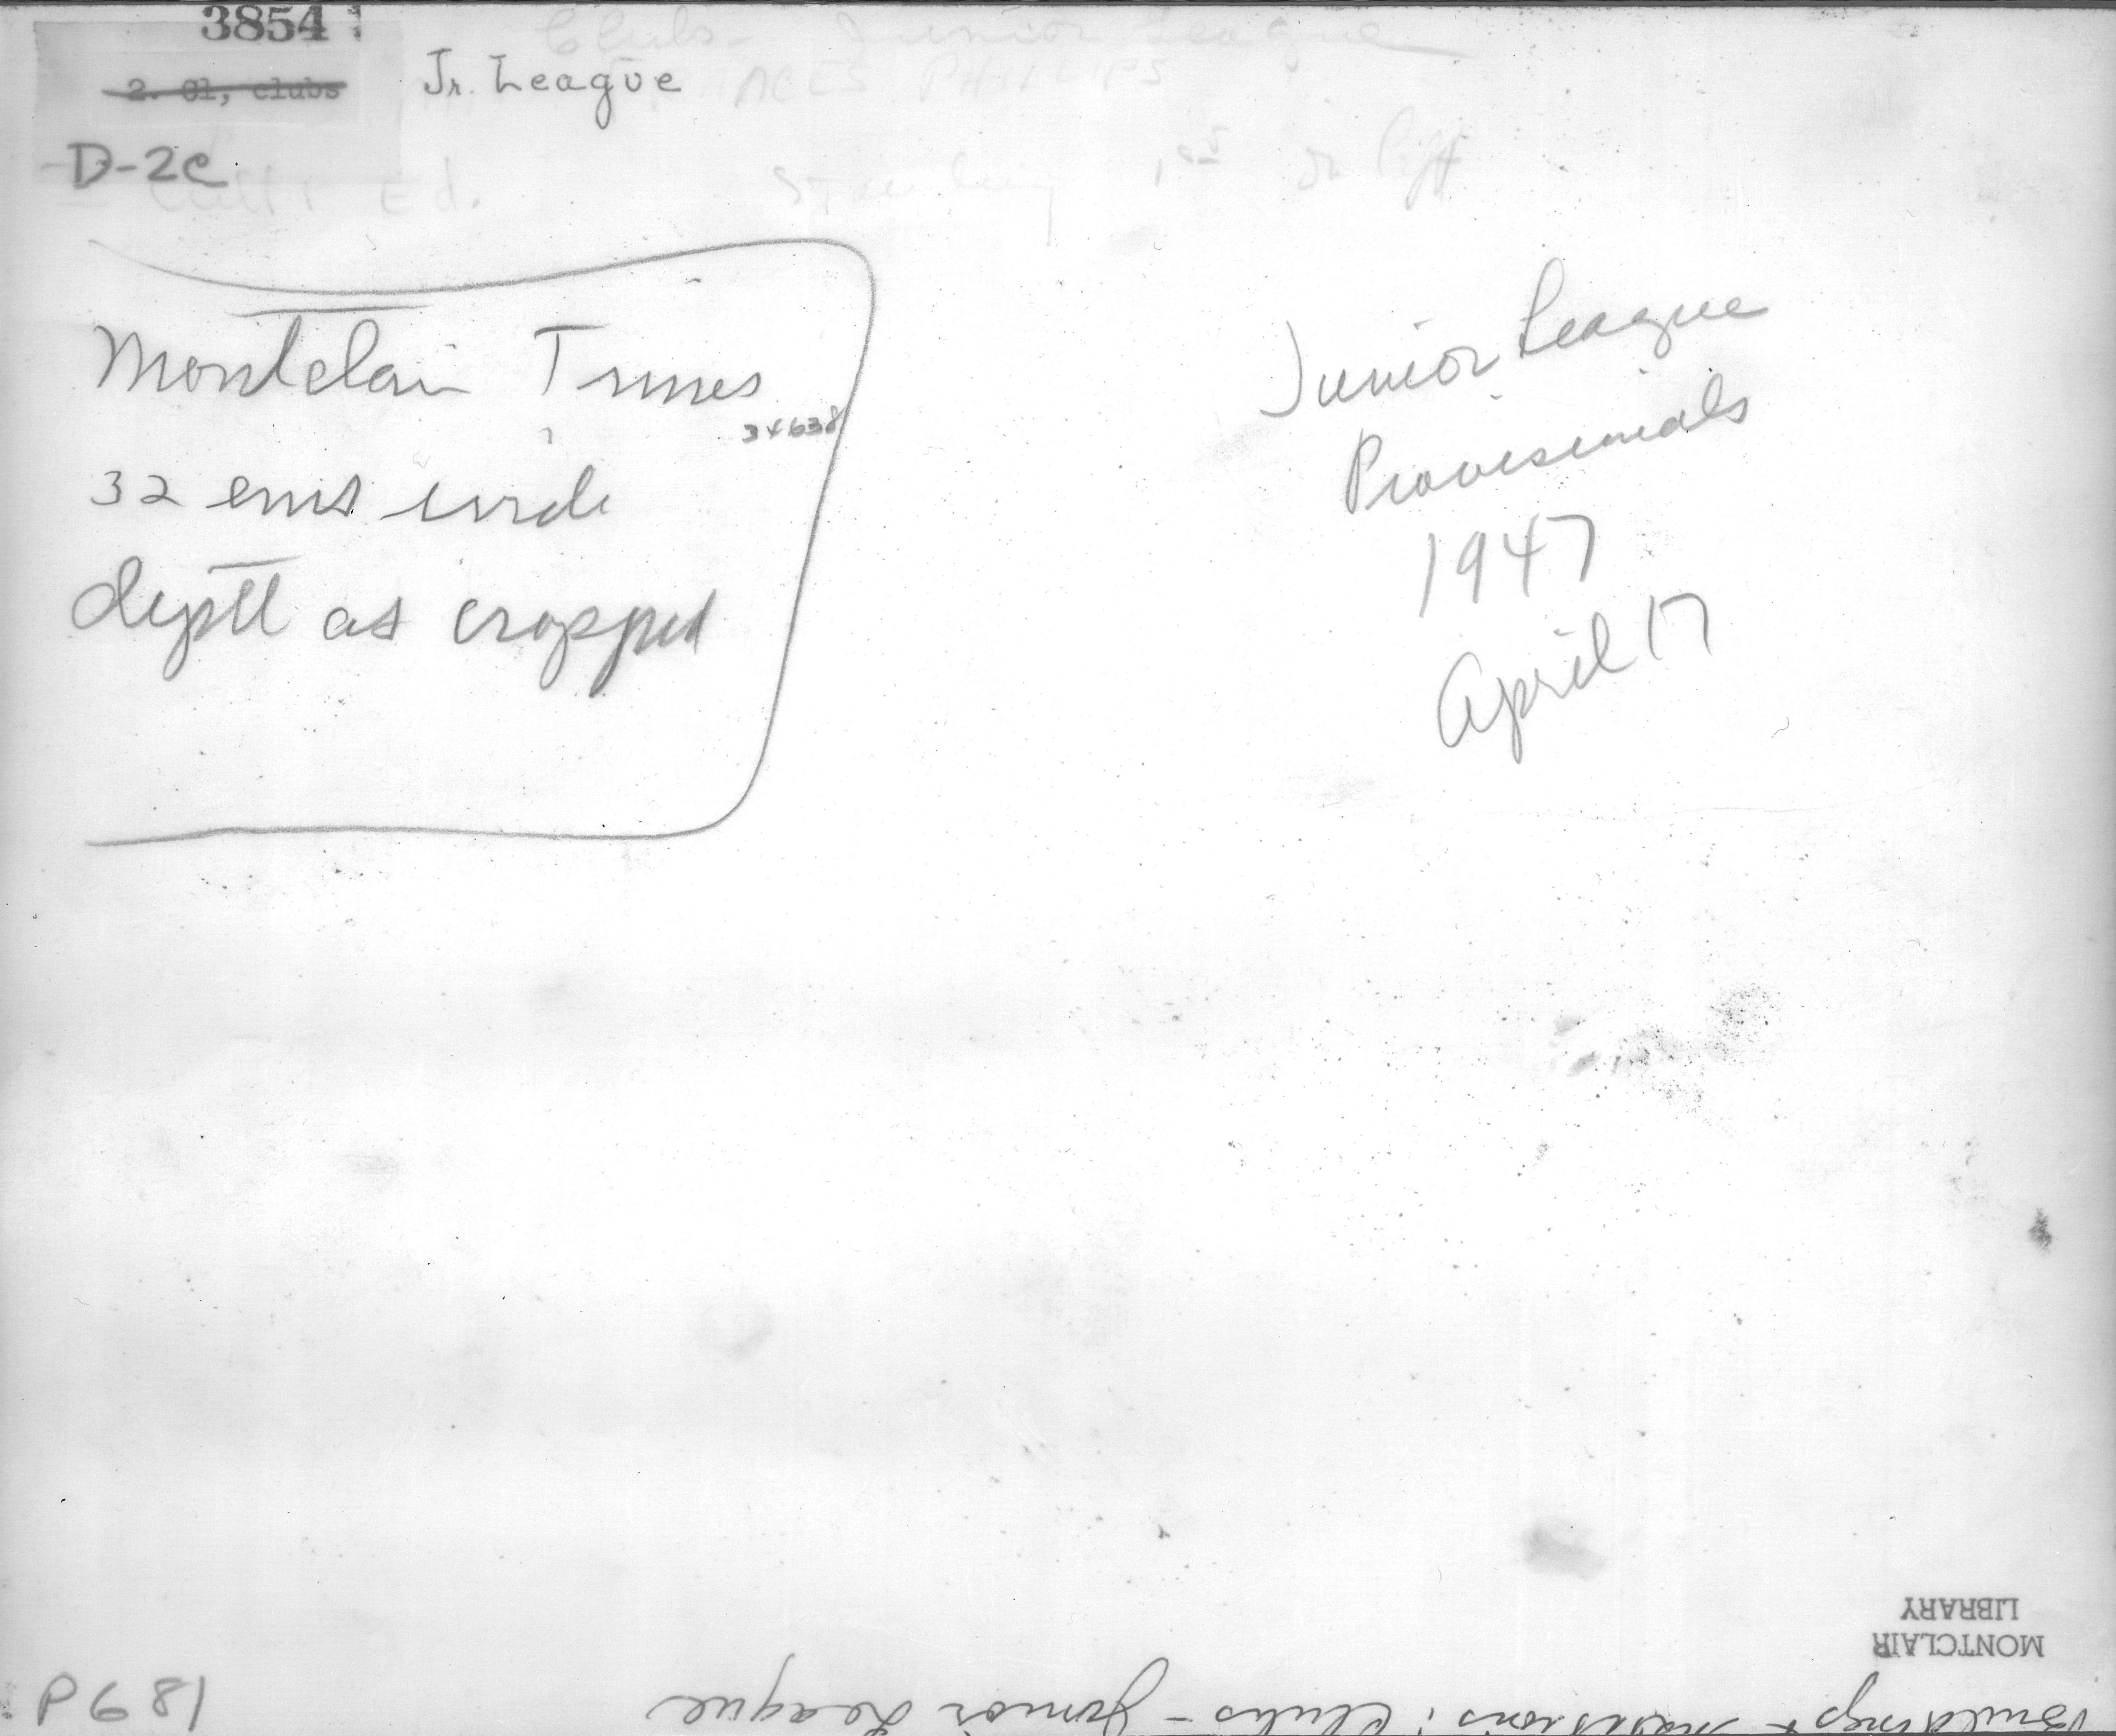 3854
2. 01, clubs
Jr. League
Clubs - Junior League
PHILLIPS
D-2c
Ed.
1st on left
Montclair Times
34638
32 ems wide
depth as cropped
Junior League
Provisionals
1947
April 17
MONTCLAIR
LIBRARY
Buildings + : Clubs - Junior League
P681